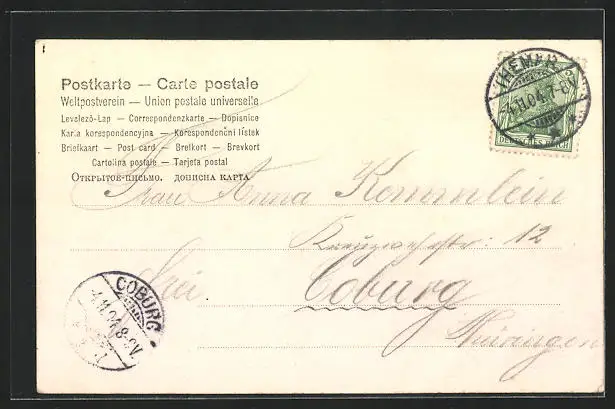 Postkarte — Carte postale
Weltpostverein — Union postale universelle
Levelező-Lap — Correspondenzkarte — Dopisnice
Karta korespondencyjna — Korespondenční lístek
Briefkaart — Post card — Brefkort — Brevkort
Cartolina postale — Tarjeta postal
Открытое письмо. дописна карта
THEMAR
3.11.04.7-8V
DEUTSCHES REICH
Frau Anna Kemmlein
12
Coburg
Thüringen
COBURG
4.11.04.8-9V.